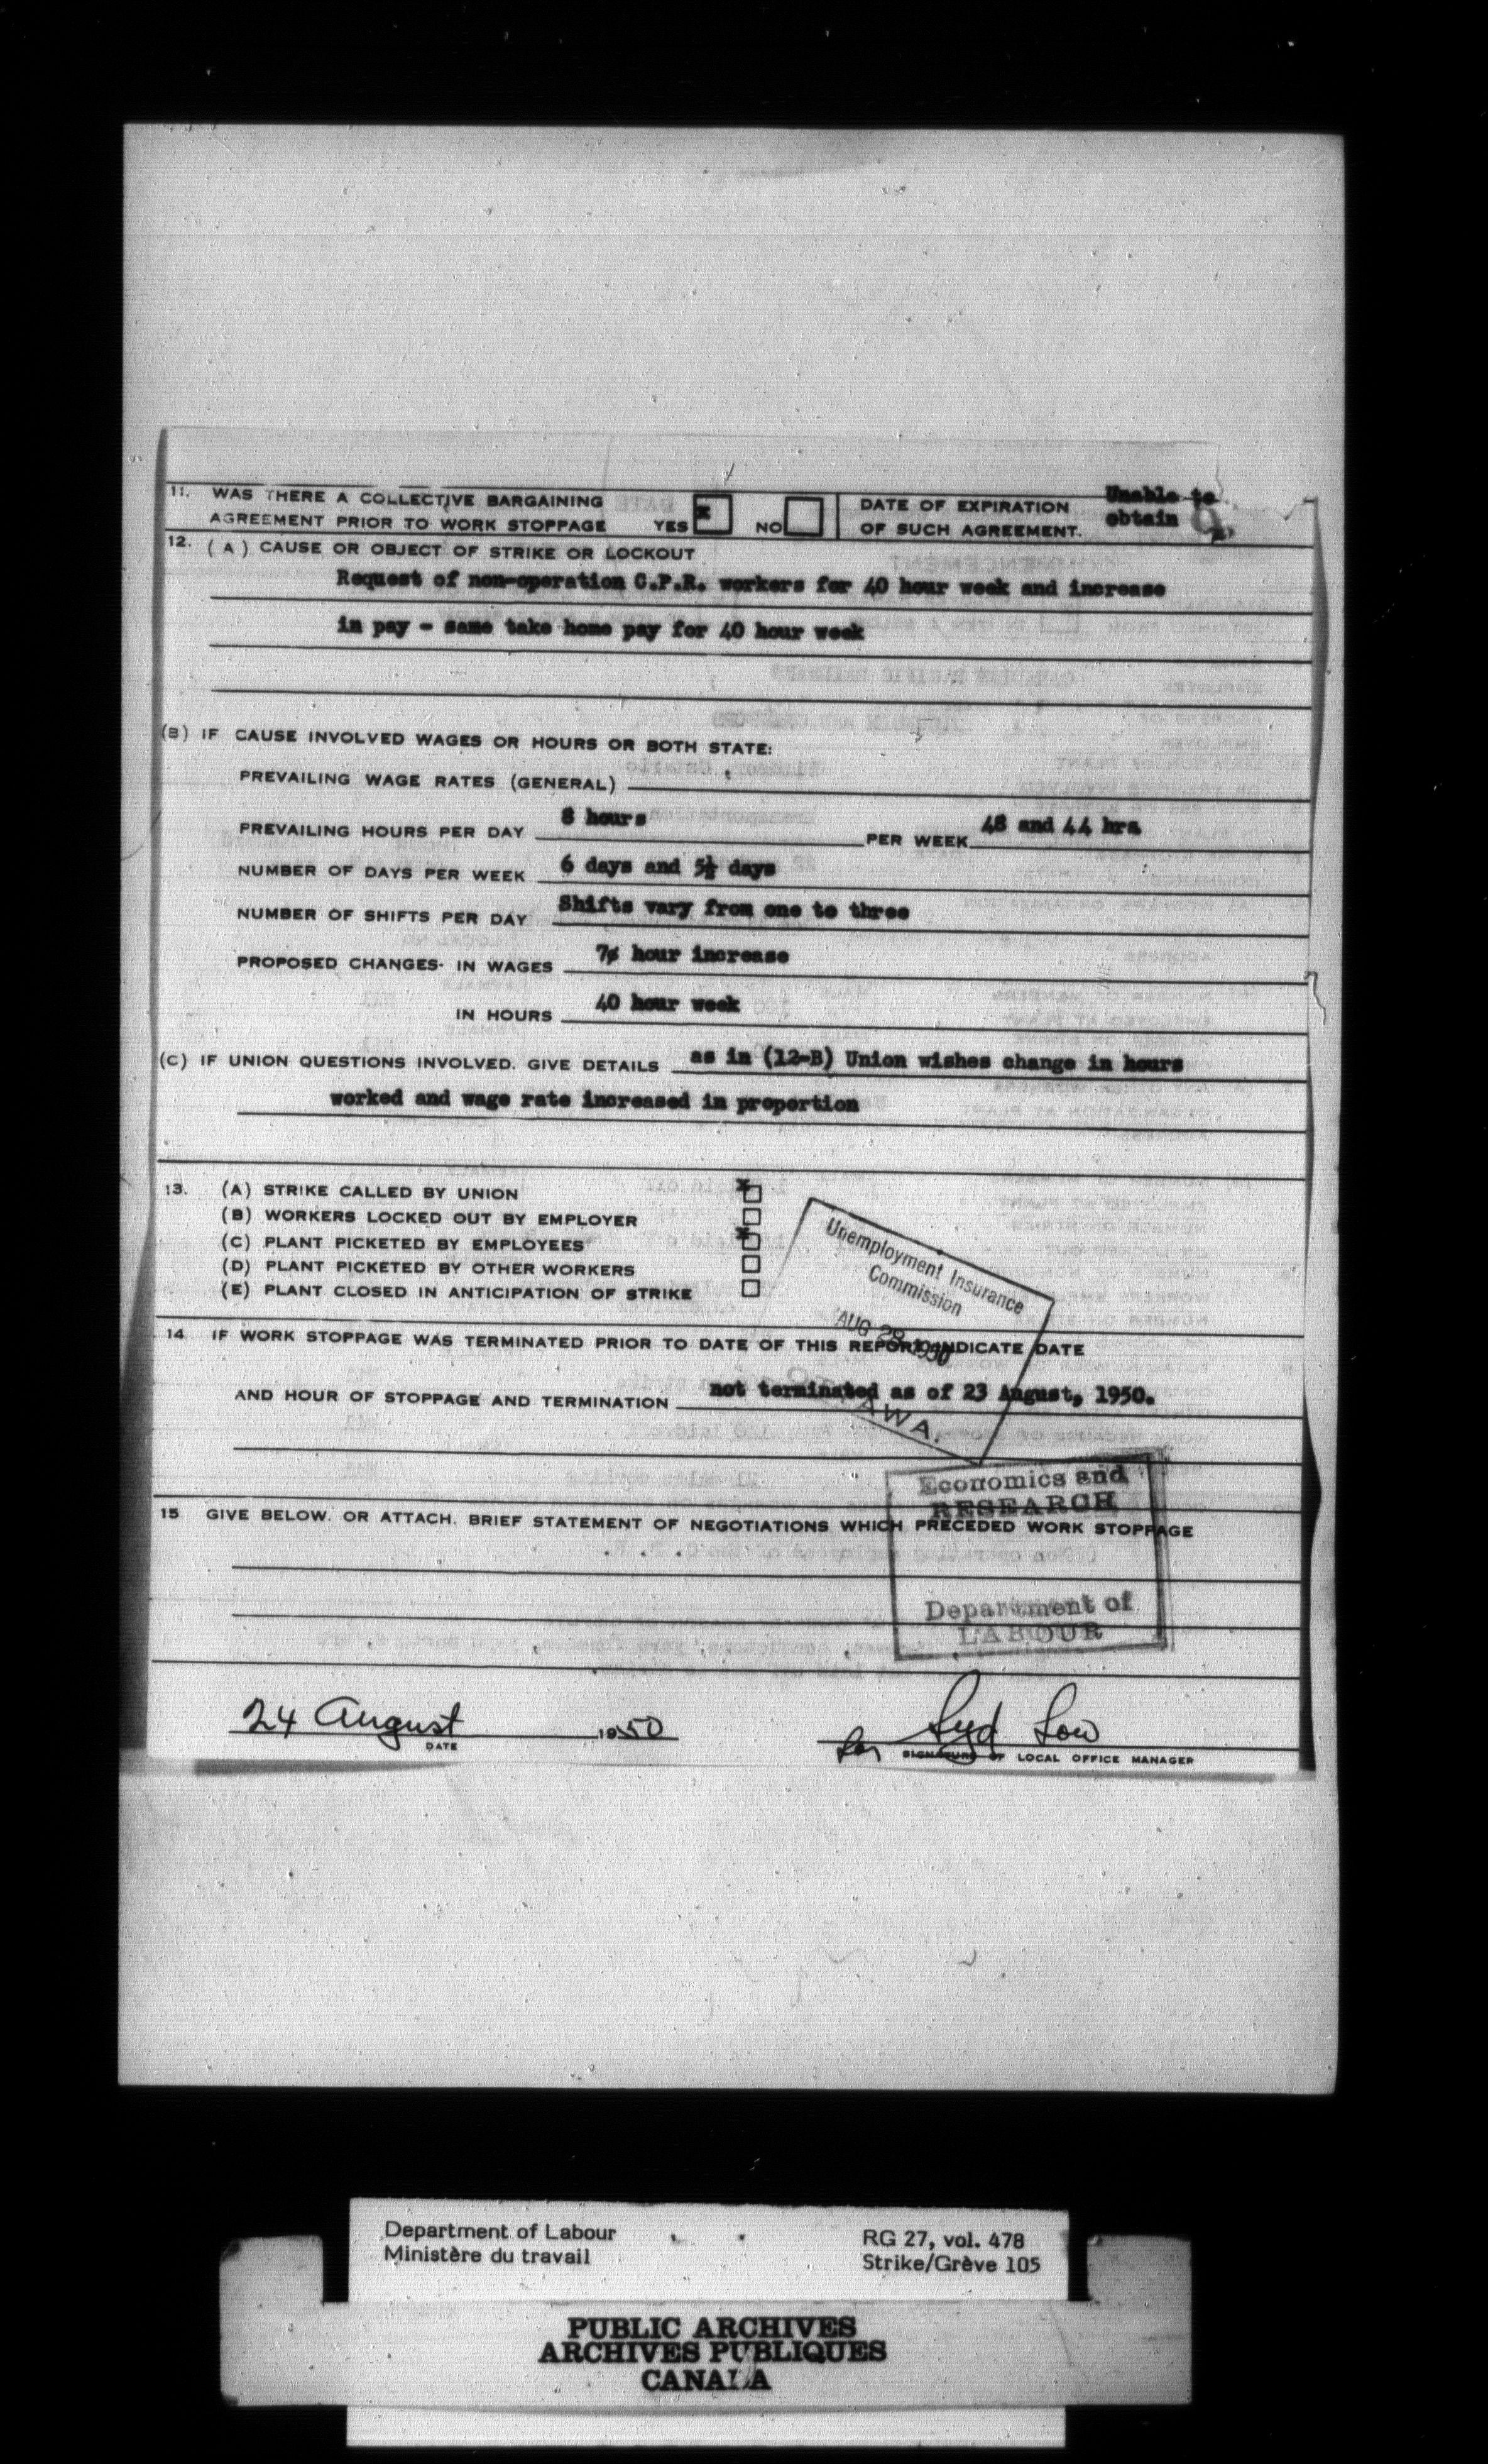 11. WAS THERE A COLLECTIVE BARGAINING
AGREEMENT PRIOR TO WORK STOPPAGE YES x NO
DATE OF EXPIRATION
OF SUCH AGREEMENT.
Unable to
obtain
12. (A) CAUSE OR OBJECT OF STRIKE OR LOCKOUT
Request of non-operation C.P.R. workers for 40 hour week and increase
in pay - same take home pay for 40 hour week
(B) IF CAUSE INVOLVED WAGES OR HOURS OR BOTH STATE:
PREVAILING WAGE RATES (GENERAL)
PREVAILING HOURS PER DAY 8 hours PER WEEK 48 and 44 hrs
NUMBER OF DAYS PER WEEK 6 days and 5½ days
NUMBER OF SHIFTS PER DAY Shifts vary from one to three
PROPOSED CHANGES- IN WAGES 7¢ hour increase
IN HOURS 40 hour week
(C) IF UNION QUESTIONS INVOLVED. GIVE DETAILS as in (12-B) Union wishes change in hours
worked and wage rate increased in proportion
13. (A) STRIKE CALLED BY UNION x
(B) WORKERS LOCKED OUT BY EMPLOYER
(C) PLANT PICKETED BY EMPLOYEES x
(D) PLANT PICKETED BY OTHER WORKERS
(E) PLANT CLOSED IN ANTICIPATION OF STRIKE
Unemployment Insurance
Commission
AUG 28 1950
OTTAWA.
14 IF WORK STOPPAGE WAS TERMINATED PRIOR TO DATE OF THIS REPORT INDICATE DATE
AND HOUR OF STOPPAGE AND TERMINATION not terminated as of 23 August, 1950.
Economics and
RESEARCH
Department of
LABOUR
15 GIVE BELOW. OR ATTACH. BRIEF STATEMENT OF NEGOTIATIONS WHICH PRECEDED WORK STOPPAGE
24 August 1950
DATE
for Syd Low
SIGNATURE OF LOCAL OFFICE MANAGER
Department of Labour
Ministère du travail
RG 27, vol. 478
Strike/Grève 105
PUBLIC ARCHIVES
ARCHIVES PUBLIQUES
CANADA